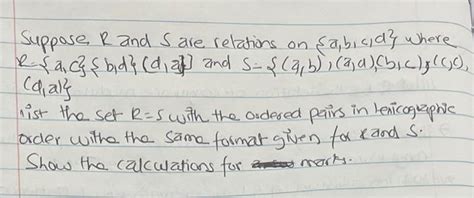 Suppose R and S are relations on {a,b,c,d} where
R={a,c}{b,d}(d,a}] and S={(a,b),(a,d)(b,c),(c,c),
(d,a)}
list the set R=S with the ordered pairs in lexicographic
order withe the same format given for R and S.
Show the calculations for marks.